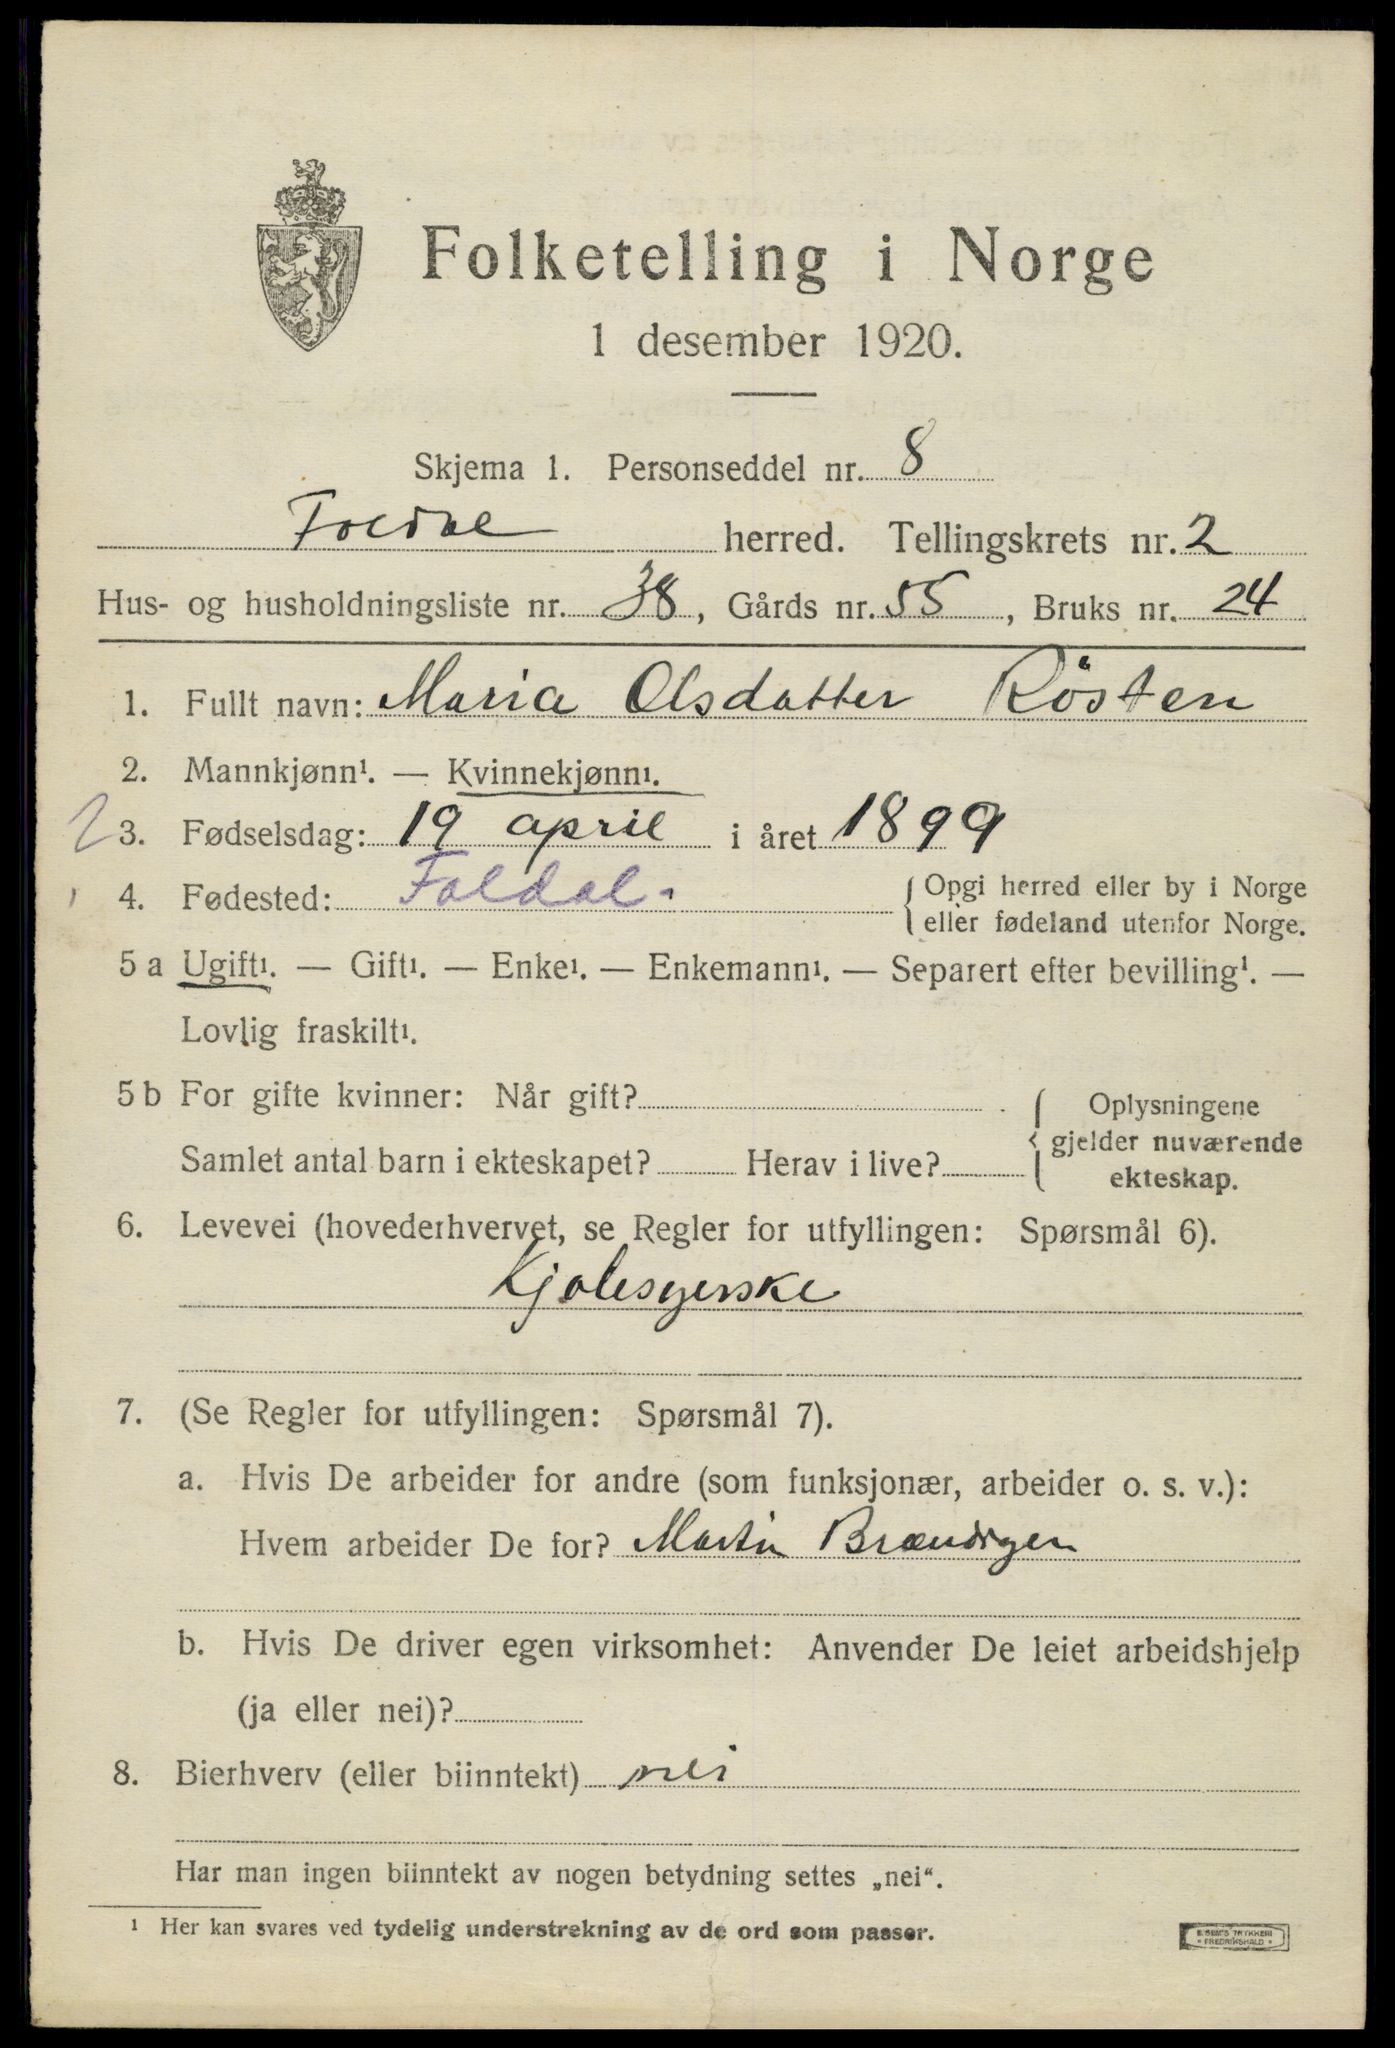 Folketelling i Norge
1 desember 1920.
Skjema 1. Personseddel nr. 8
Foldal herred. Tellingskrets nr. 2
Hus- og husholdningsliste nr. 38, Gårds nr. 55, Bruks nr. 24
1. Fullt navn: Maria Olsdatter Røsten
2. Mannkjønn¹. — Kvinnekjønn¹.
3. Fødselsdag: 19 april i året 1899
4. Fødested: Foldal. Opgi herred eller by i Norge
eller fødeland utenfor Norge.
5 a Ugift¹. — Gift¹. — Enke¹. — Enkemann¹. — Separert efter bevilling¹. —
Lovlig fraskilt¹.
5 b For gifte kvinner: Når gift? Oplysningene
gjelder nuværende
Samlet antal barn i ekteskapet? Herav i live?
ekteskap.
6. Levevei (hovederhvervet, se Regler for utfyllingen: Spørsmål 6).
Kjolesyerske
7. (Se Regler for utfyllingen: Spørsmål 7).
a. Hvis De arbeider for andre (som funksjonær, arbeider o. s. v.):
Hvem arbeider De for? Martin Brændgen
b. Hvis De driver egen virksomhet: Anvender De leiet arbeidshjelp
(ja eller nei)?
8. Bierhverv (eller biinntekt) nei
Har man ingen biinntekt av nogen betydning settes „nei“.
¹ Her kan svares ved tydelig understrekning av de ord som passer.
E. SEM'S TRYKKERI
• FREDRIKSHALD •